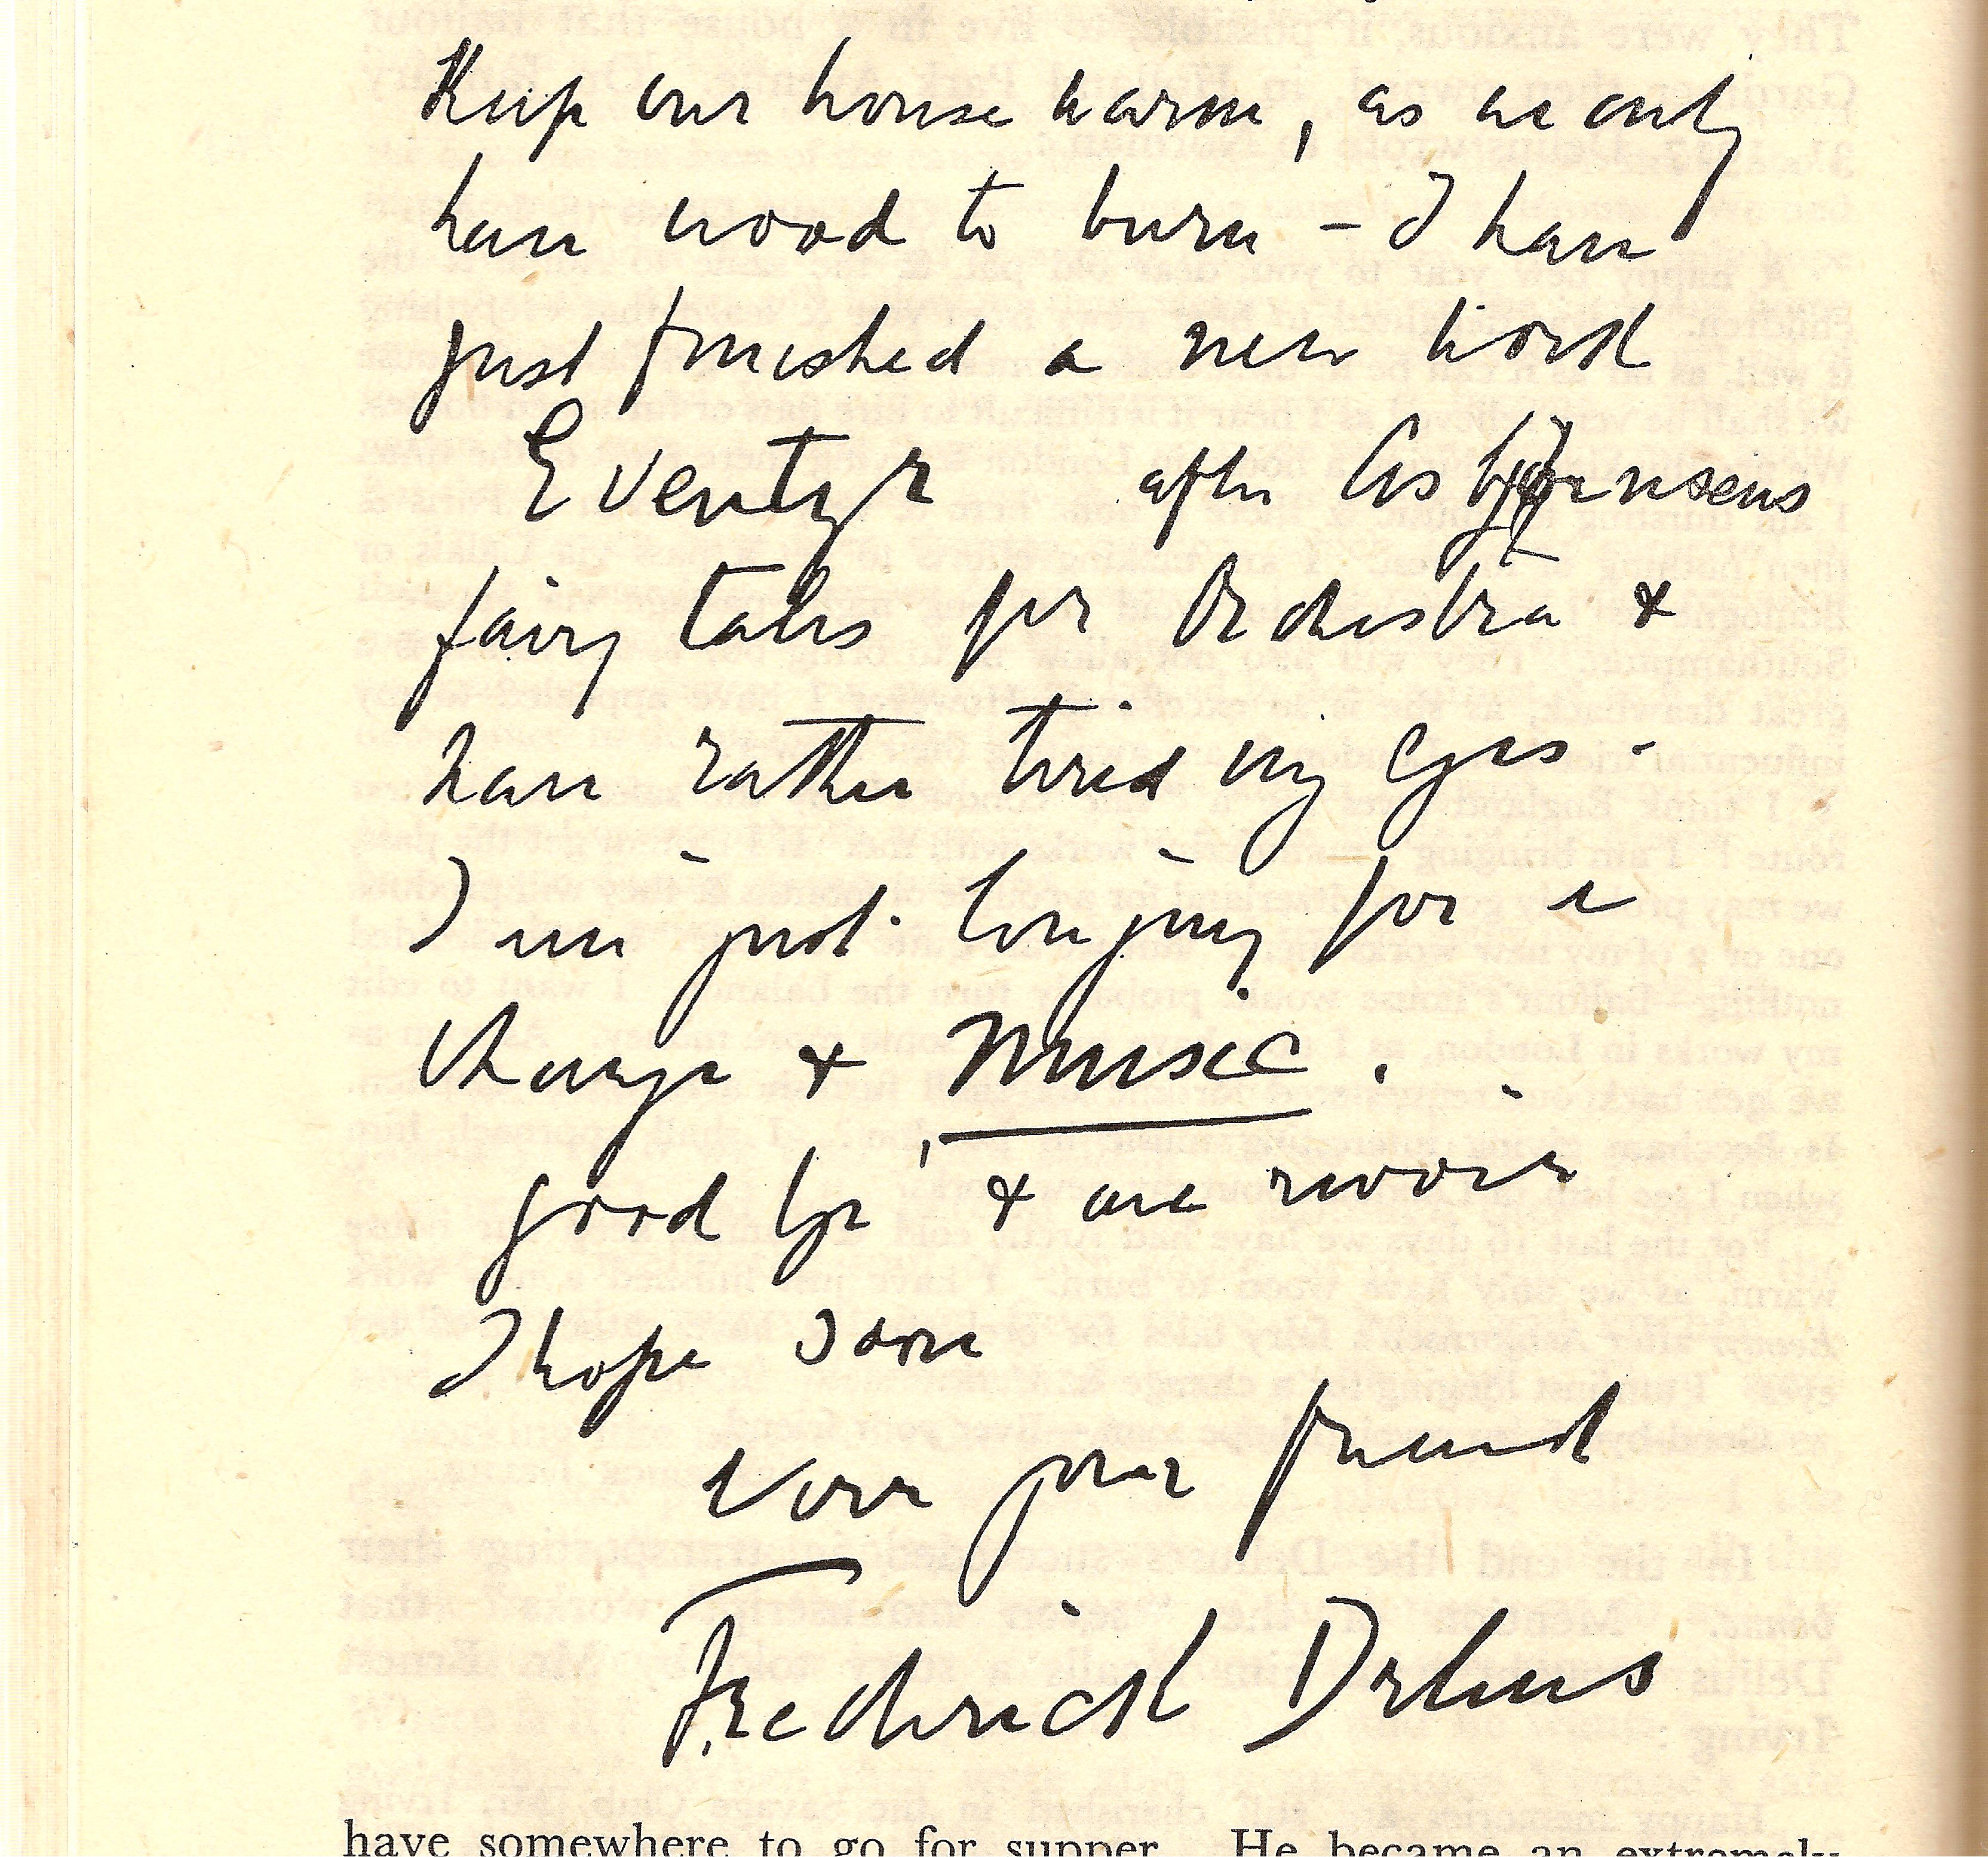 Keep our house warm, as we only
have wood to burn – I have
just finished a new work
Eventyr after Asbjørnsens
fairy tales for Orchestra &
have rather tired my eyes -
I am just longing for a
change & Music.
good bye & au revoir
I hope soon
Your friend
Frederick Delius
have somewhere to go for supper. He became an extremely